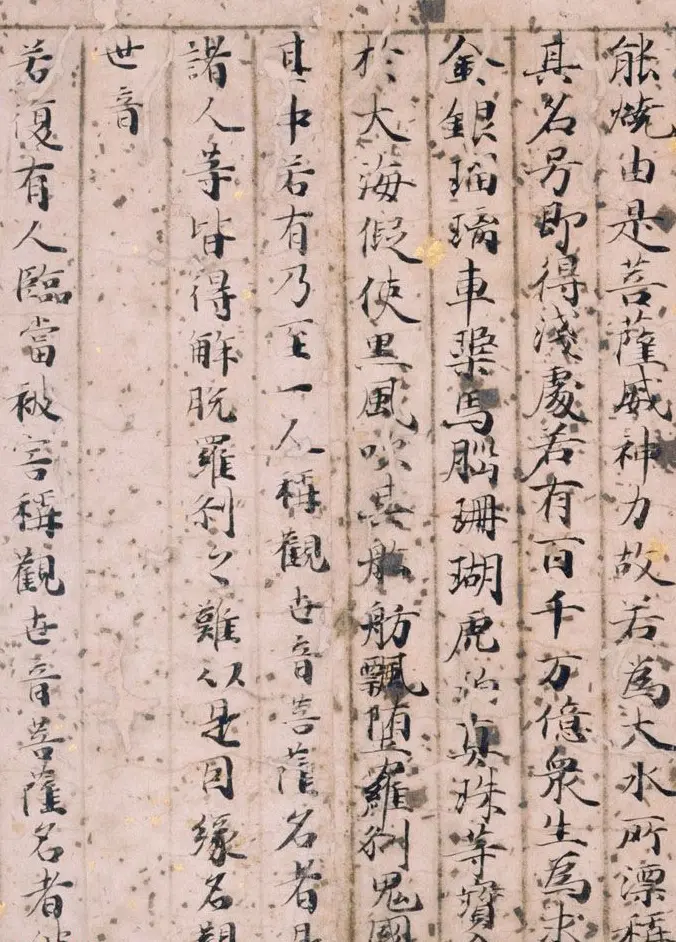 能燒由是菩薩威神力故若為大水所漂稱
其名号即得淺處若有百千万億衆生為求
金銀瑠璃車璖馬腦珊瑚虎珀真珠等寳
於大海假使黒風吹其舩舫飄堕羅刹鬼國
其中若有乃至一人稱觀世音菩薩名者是
諸人等皆得解脱羅刹之難以是因縁名觀
世音
若復有人臨當被害稱觀世音菩薩名者